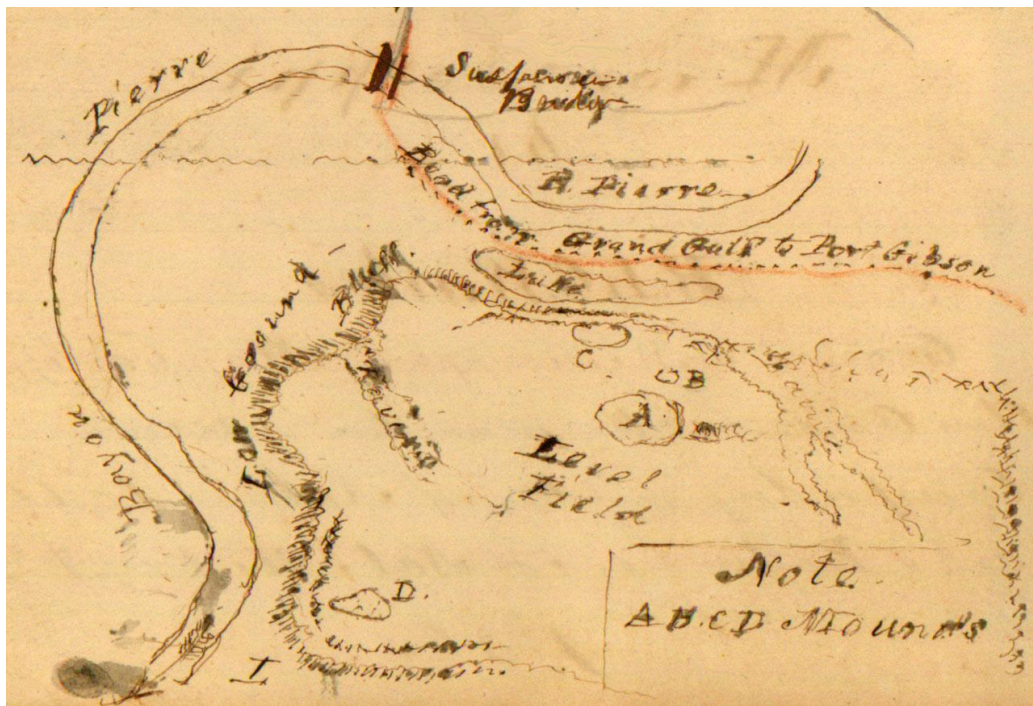 Pierre
Suspension
Bridge
R. Pierre
Road from Grand Gulf to Port Gibson
Lake
Bluff
Ground
Low
Ravine
C
B
A
Ravine
Level
Field
Bayou
D.
Note
A B. C D Mounds